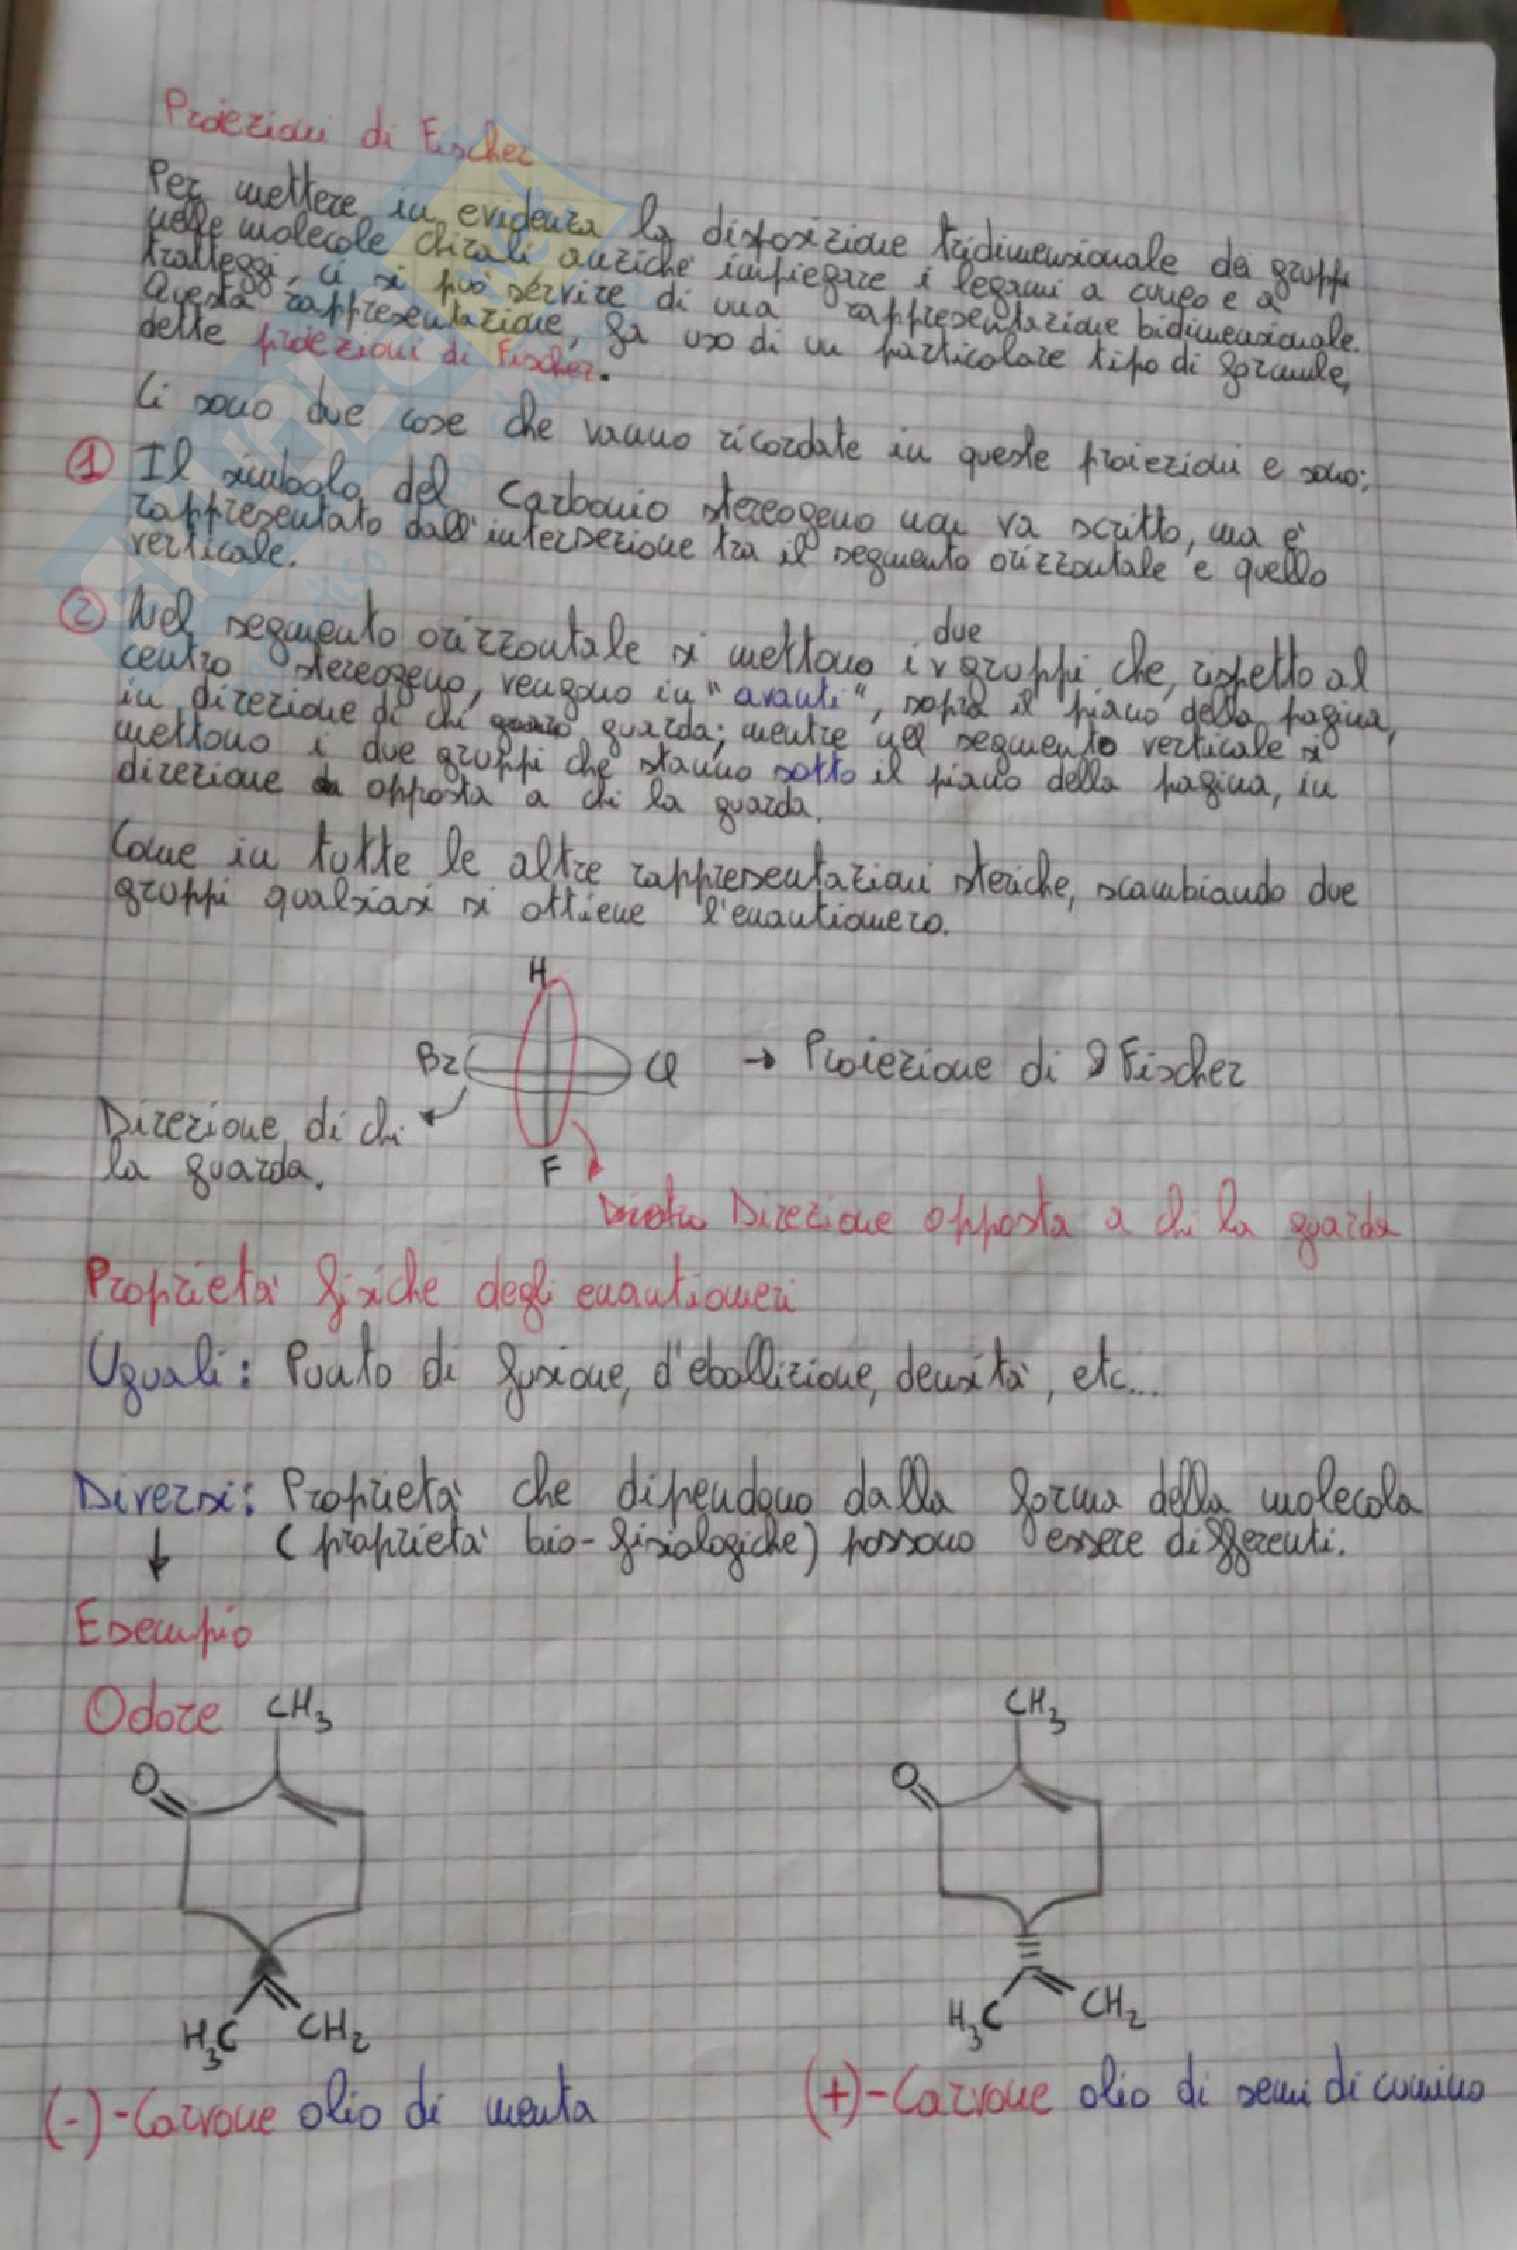 Proiezioni di Fischer
Per mettere in evidenza la disposizione tridimensionale dei gruppi
nelle molecole chirali anziché impiegare i legami a cuneo e a
tratteggi, ci si può servire di una rappresentazione bidimensionale.
Questa rappresentazione, fa uso di un particolare tipo di formule,
dette proiezioni di Fischer.
Ci sono due cose che vanno ricordate in queste proiezioni e sono:
1 Il simbolo del Carbonio stereogeno non va scritto, ma è
rappresentato dall'intersezione tra il segmento orizzontale e quello
verticale.
2 Nel segmento orizzontale si mettono i due gruppi che, rispetto al
centro stereogeno, vengono in "avanti", sopra il piano della pagina,
in direzione di chi guarda; mentre nel segmento verticale si
mettono i due gruppi che stanno sotto il piano della pagina, in
direzione opposta a chi la guarda.
Come in tutte le altre rappresentazioni steriche, scambiando due
gruppi qualsiasi si ottiene l'enantiomero.
H
Br Cl → Proiezione di Fischer
Direzione di chi
la guarda.
F
Direzione opposta a chi la guarda
Proprietà fisiche degli enantiomeri
Uguali: Punto di fusione, d'ebollizione, densità, etc...
Diversi: Proprietà che dipendono dalla forma della molecola
(proprietà bio-fisiologiche) possono essere differenti.
Esempio
Odore CH3 CH3
O O
H3C CH2 H3C CH2
(-)-Carvone olio di menta (+)-Carvone olio di semi di cumino